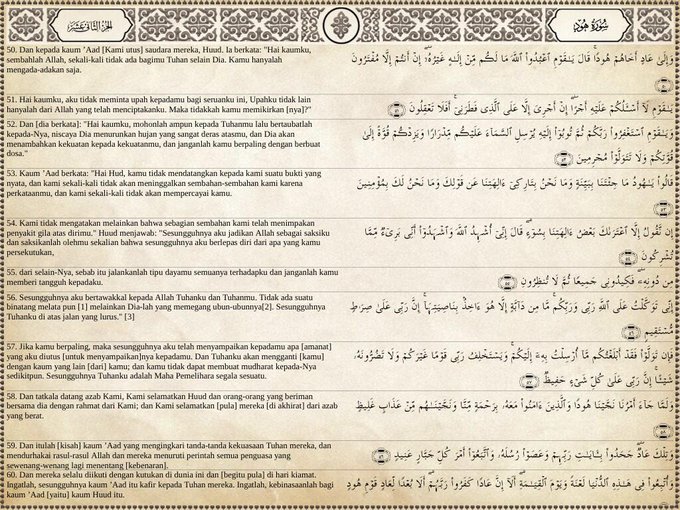 الجزء الثاني عشر
سورة هود
50. Dan kepada kaum 'Aad [Kami utus] saudara mereka, Huud. Ia berkata: "Hai kaumku,
sembahlah Allah, sekali-kali tidak ada bagimu Tuhan selain Dia. Kamu hanyalah
mengada-adakan saja.
وَإِلَىٰ عَادٍ أَخَاهُمْ هُودًا ۚ قَالَ يَـٰقَوْمِ ٱعْبُدُوا۟ ٱللَّهَ مَا لَكُم مِّنْ إِلَـٰهٍ غَيْرُهُۥٓ ۖ إِنْ أَنتُمْ إِلَّا مُفْتَرُونَ
٥٠
51. Hai kaumku, aku tidak meminta upah kepadamu bagi seruanku ini, Upahku tidak lain
hanyalah dari Allah yang telah menciptakanku. Maka tidakkah kamu memikirkan [nya]?"
يَـٰقَوْمِ لَآ أَسْـَٔلُكُمْ عَلَيْهِ أَجْرًا ۖ إِنْ أَجْرِىَ إِلَّا عَلَى ٱلَّذِى فَطَرَنِىٓ ۚ أَفَلَا تَعْقِلُونَ ٥١
52. Dan [dia berkata]: "Hai kaumku, mohonlah ampun kepada Tuhanmu lalu bertaubatlah
kepada-Nya, niscaya Dia menurunkan hujan yang sangat deras atasmu, dan Dia akan
menambahkan kekuatan kepada kekuatanmu, dan janganlah kamu berpaling dengan berbuat
dosa."
وَيَـٰقَوْمِ ٱسْتَغْفِرُوا۟ رَبَّكُمْ ثُمَّ تُوبُوٓا۟ إِلَيْهِ يُرْسِلِ ٱلسَّمَآءَ عَلَيْكُم مِّدْرَارًا وَيَزِدْكُمْ قُوَّةً إِلَىٰ
قُوَّتِكُمْ وَلَا تَتَوَلَّوْا۟ مُجْرِمِينَ ٥٢
53. Kaum 'Aad berkata: "Hai Hud, kamu tidak mendatangkan kepada kami suatu bukti yang
nyata, dan kami sekali-kali tidak akan meninggalkan sembahan-sembahan kami karena
perkataanmu, dan kami sekali-kali tidak akan mempercayai kamu.
قَالُوا۟ يَـٰهُودُ مَا جِئْتَنَا بِبَيِّنَةٍ وَمَا نَحْنُ بِتَارِكِىٓ ءَالِهَتِنَا عَن قَوْلِكَ وَمَا نَحْنُ لَكَ بِمُؤْمِنِينَ
٥٣
54. Kami tidak mengatakan melainkan bahwa sebagian sembahan kami telah menimpakan
penyakit gila atas dirimu." Huud menjawab: "Sesungguhnya aku jadikan Allah sebagai saksiku
dan saksikanlah olehmu sekalian bahwa sesungguhnya aku berlepas diri dari apa yang kamu
persekutukan,
إِن نَّقُولُ إِلَّا ٱعْتَرَىٰكَ بَعْضُ ءَالِهَتِنَا بِسُوٓءٍ ۗ قَالَ إِنِّىٓ أُشْهِدُ ٱللَّهَ وَٱشْهَدُوٓا۟ أَنِّى بَرِىٓءٌ مِّمَّا
تُشْرِكُونَ ٥٤
55. dari selain-Nya, sebab itu jalankanlah tipu dayamu semuanya terhadapku dan janganlah kamu
memberi tangguh kepadaku.
مِن دُونِهِۦ ۖ فَكِيدُونِى جَمِيعًا ثُمَّ لَا تُنظِرُونِ ٥٥
56. Sesungguhnya aku bertawakkal kepada Allah Tuhanku dan Tuhanmu. Tidak ada suatu
binatang melata pun [1] melainkan Dia-lah yang memegang ubun-ubunnya[2]. Sesungguhnya
Tuhanku di atas jalan yang lurus." [3]
إِنِّى تَوَكَّلْتُ عَلَى ٱللَّهِ رَبِّى وَرَبِّكُم ۚ مَّا مِن دَآبَّةٍ إِلَّا هُوَ ءَاخِذٌۢ بِنَاصِيَتِهَآ ۚ إِنَّ رَبِّى عَلَىٰ صِرَٰطٍ
مُّسْتَقِيمٍ ٥٦
57. Jika kamu berpaling, maka sesungguhnya aku telah menyampaikan kepadamu apa [amanat]
yang aku diutus [untuk menyampaikan]nya kepadamu. Dan Tuhanku akan mengganti [kamu]
dengan kaum yang lain [dari] kamu; dan kamu tidak dapat membuat mudharat kepada-Nya
sedikitpun. Sesungguhnya Tuhanku adalah Maha Pemelihara segala sesuatu.
فَإِن تَوَلَّوْا۟ فَقَدْ أَبْلَغْتُكُم مَّآ أُرْسِلْتُ بِهِۦٓ إِلَيْكُمْ ۚ وَيَسْتَخْلِفُ رَبِّى قَوْمًا غَيْرَكُمْ وَلَا تَضُرُّونَهُۥ
شَيْـًٔا ۚ إِنَّ رَبِّى عَلَىٰ كُلِّ شَىْءٍ حَفِيظٌ ٥٧
58. Dan tatkala datang azab Kami, Kami selamatkan Huud dan orang-orang yang beriman
bersama dia dengan rahmat dari Kami; dan Kami selamatkan [pula] mereka [di akhirat] dari azab
yang berat.
وَلَمَّا جَآءَ أَمْرُنَا نَجَّيْنَا هُودًا وَٱلَّذِينَ ءَامَنُوا۟ مَعَهُۥ بِرَحْمَةٍ مِّنَّا وَنَجَّيْنَـٰهُم مِّنْ عَذَابٍ غَلِيظٍ
٥٨
59. Dan itulah [kisah] kaum 'Aad yang mengingkari tanda-tanda kekuasaan Tuhan mereka, dan
mendurhakai rasul-rasul Allah dan mereka menuruti perintah semua penguasa yang
sewenang-wenang lagi menentang [kebenaran].
وَتِلْكَ عَادٌ ۖ جَحَدُوا۟ بِـَٔايَـٰتِ رَبِّهِمْ وَعَصَوْا۟ رُسُلَهُۥ وَٱتَّبَعُوٓا۟ أَمْرَ كُلِّ جَبَّارٍ عَنِيدٍ ٥٩
60. Dan mereka selalu diikuti dengan kutukan di dunia ini dan [begitu pula] di hari kiamat.
Ingatlah, sesungguhnya kaum 'Aad itu kafir kepada Tuhan mereka. Ingatlah, kebinasaanlah bagi
kaum 'Aad [yaitu] kaum Huud itu.
وَأُتْبِعُوا۟ فِى هَـٰذِهِ ٱلدُّنْيَا لَعْنَةً وَيَوْمَ ٱلْقِيَـٰمَةِ ۗ أَلَآ إِنَّ عَادًا كَفَرُوا۟ رَبَّهُمْ ۗ أَلَا بُعْدًا لِّعَادٍ قَوْمِ هُودٍ